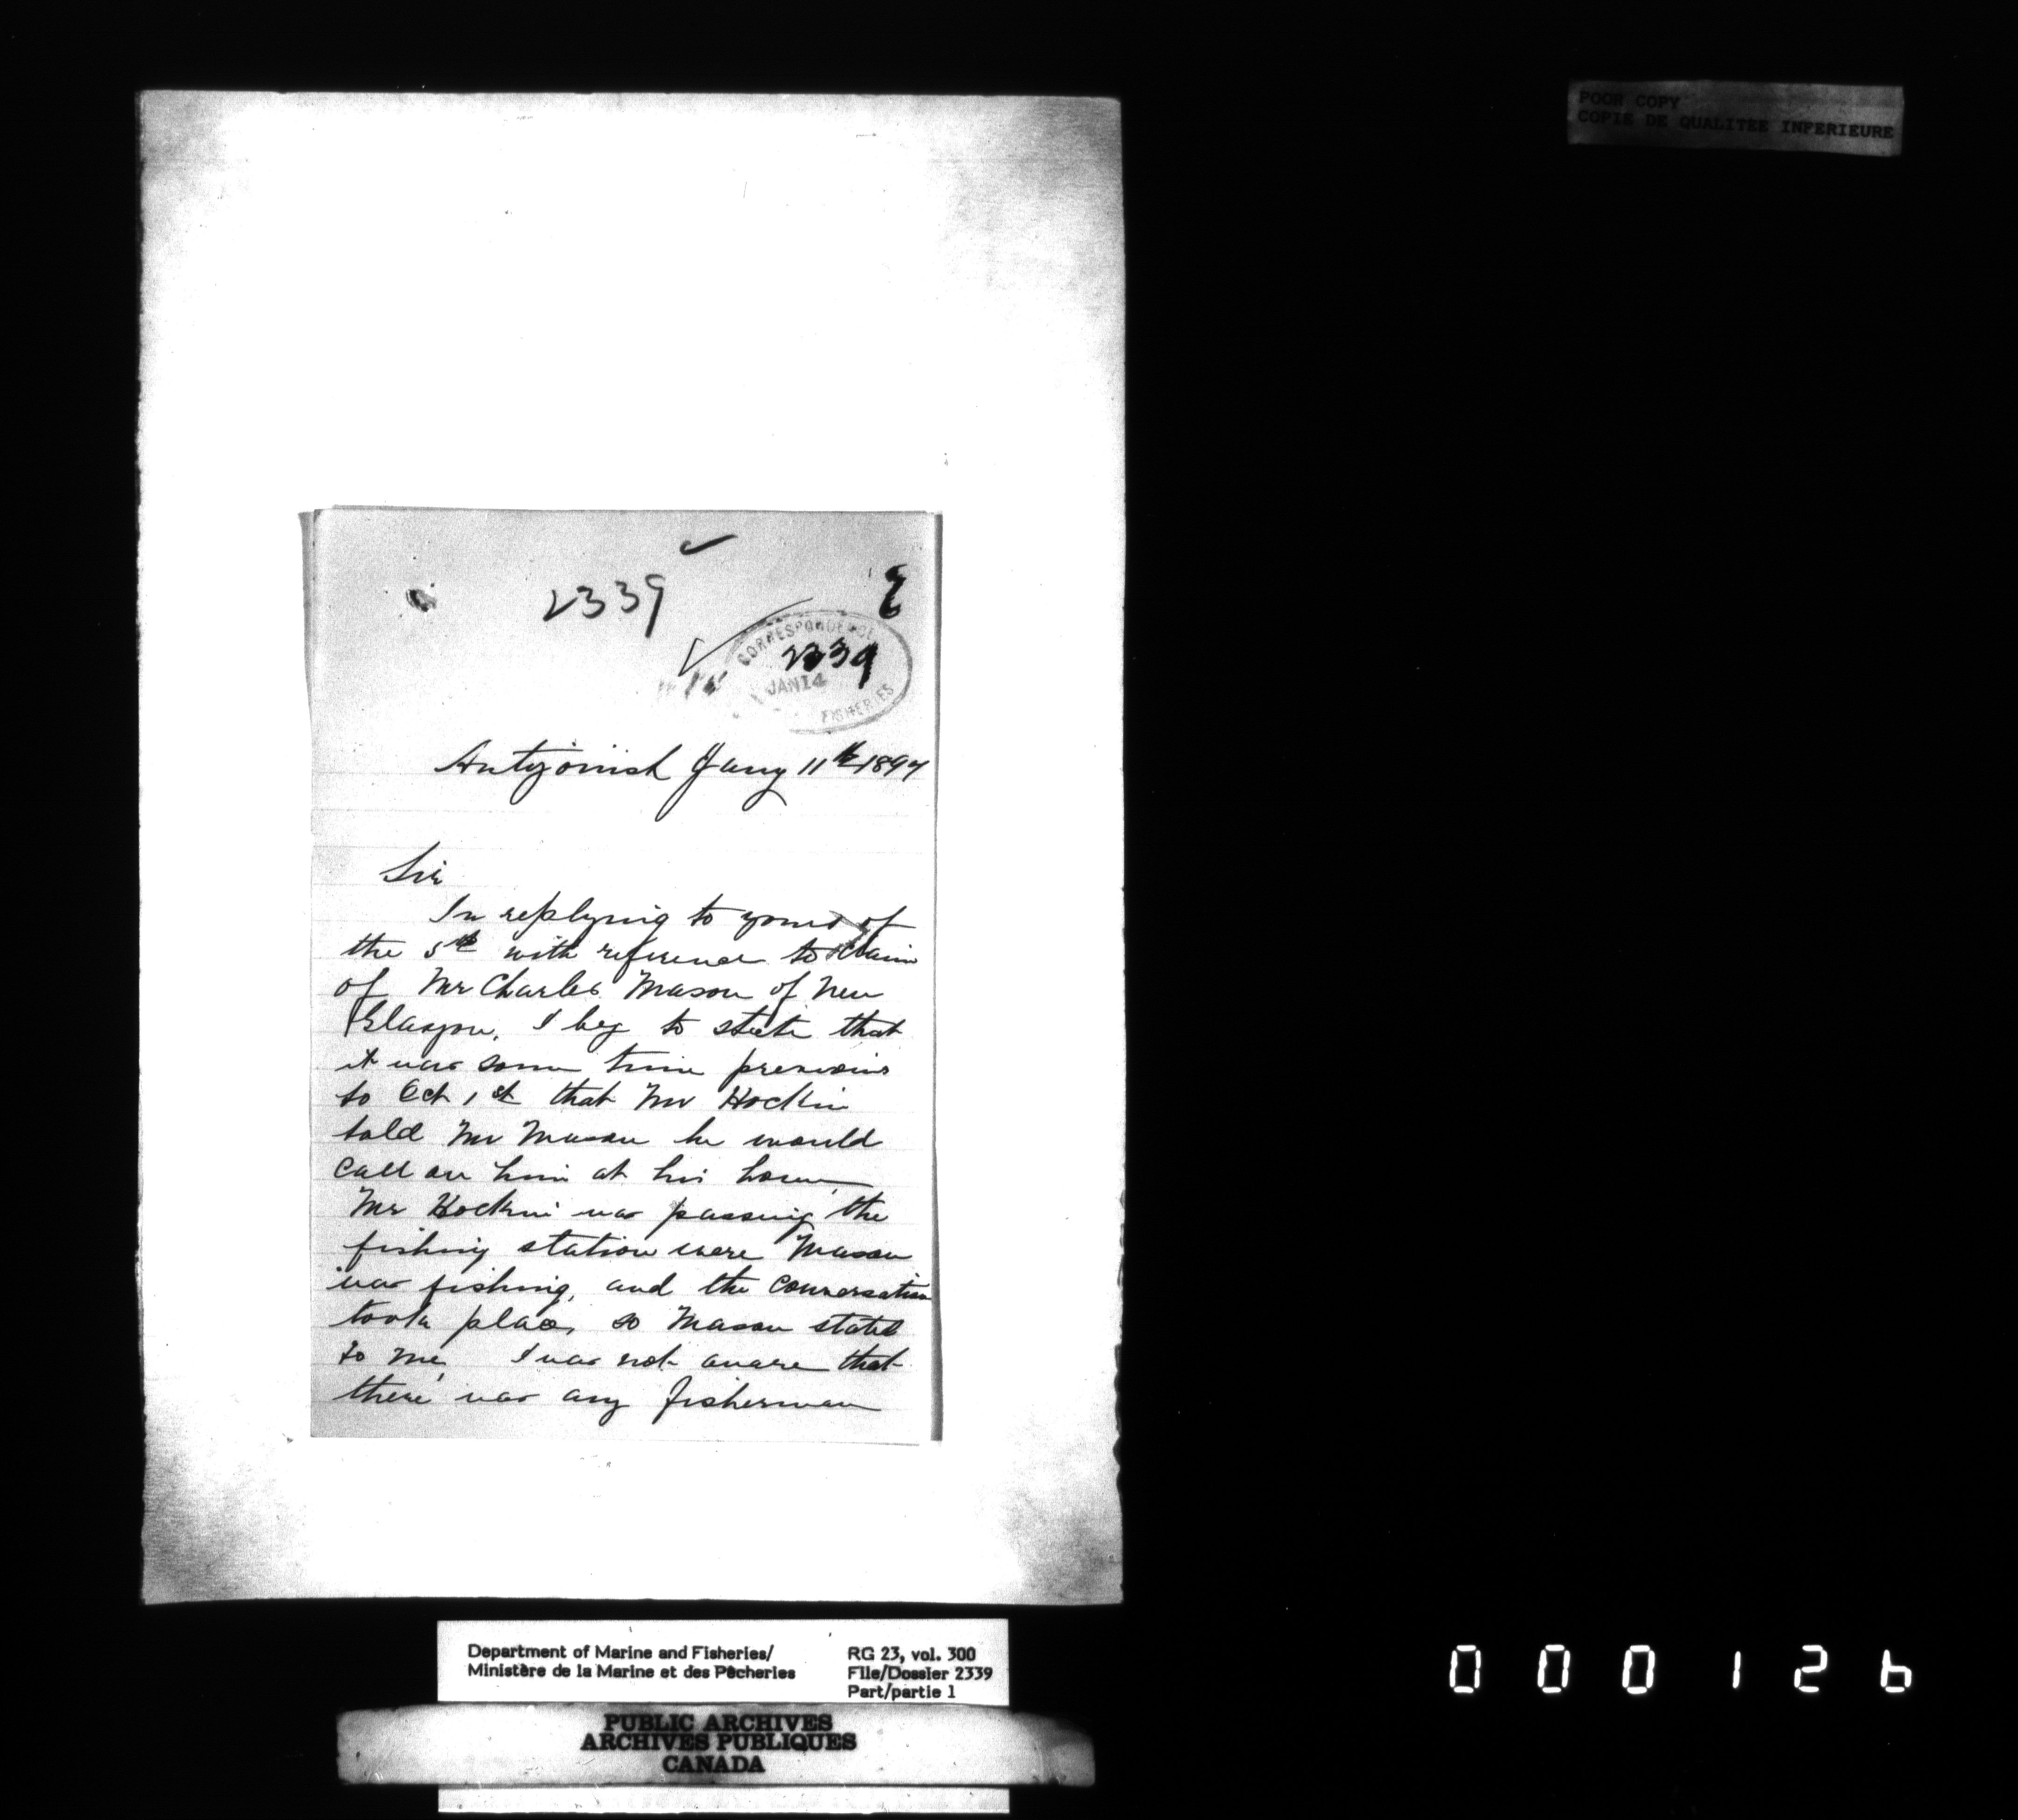 POOR COPY
COPIE DE QUALITEE INFERIEURE
2339
CORRESPONDENCE
2339
JAN 14
FISHERIES
Antigonish Jany 11th 1897
Sir
In replying to yours of
the 5th with reference to claim
of Mr Charles Mason of New
Glasgow, I beg to state that
it was some time previous
to Oct 1st that Mr Hockin
told Mr Mason he would
call on him at his house,
Mr Hockin was passing the
fishing station were Mason
was fishing, and the conversation
took place, so Mason stated
to me, I was not aware that
there was any fisherman
Department of Marine and Fisheries/
Ministère de la Marine et des Pêcheries
RG 23, vol. 300
File/Dossier 2339
Part/partie 1
PUBLIC ARCHIVES
ARCHIVES PUBLIQUES
CANADA
000126